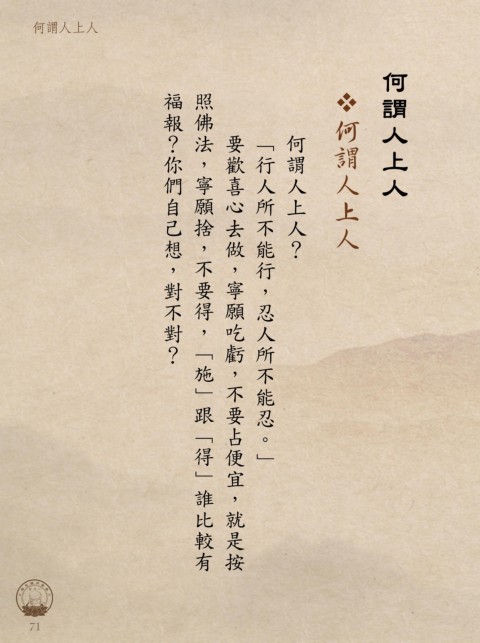 何謂人上人
何謂人上人
❖何謂人上人
何謂人上人？
「行人所不能行，忍人所不能忍。」
要歡喜心去做，寧願吃虧，不要占便宜，就是按
照佛法，寧願捨，不要得，「施」跟「得」誰比較有
福報？你們自己想，對不對？
71